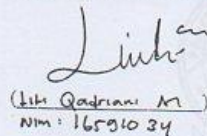 (Lili Qadriani M)
Nim : 16591034